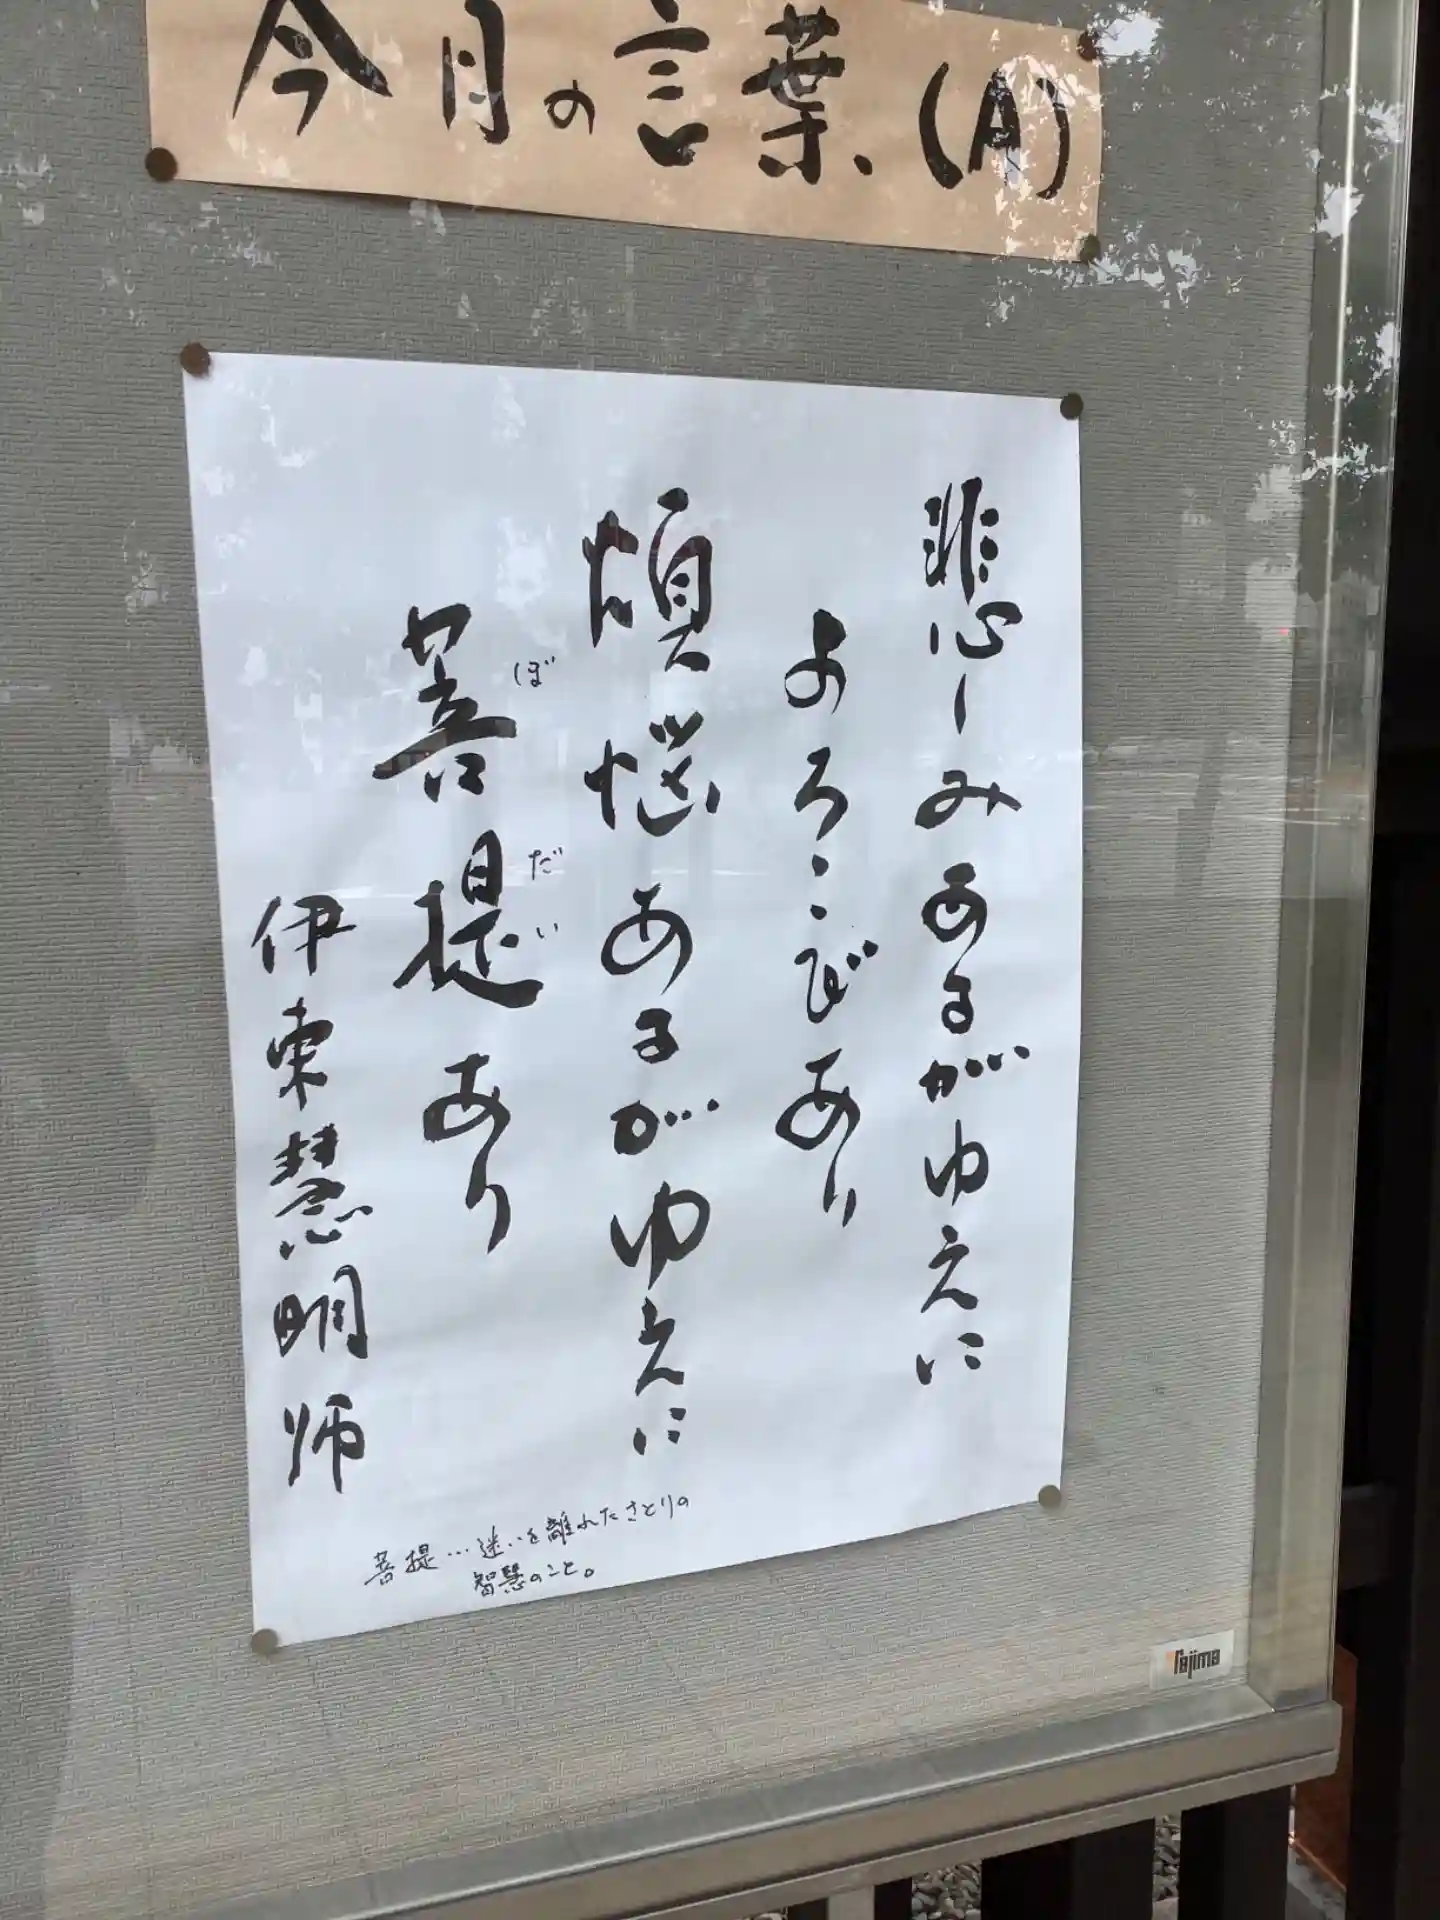 今月の言葉(A)
悲しみあるがゆえに
よろこびあり
煩悩あるがゆえに
菩提あり
ぼだい
伊東慧明師
菩提…迷いを離れたさとりの
智慧のこと。
Tajima